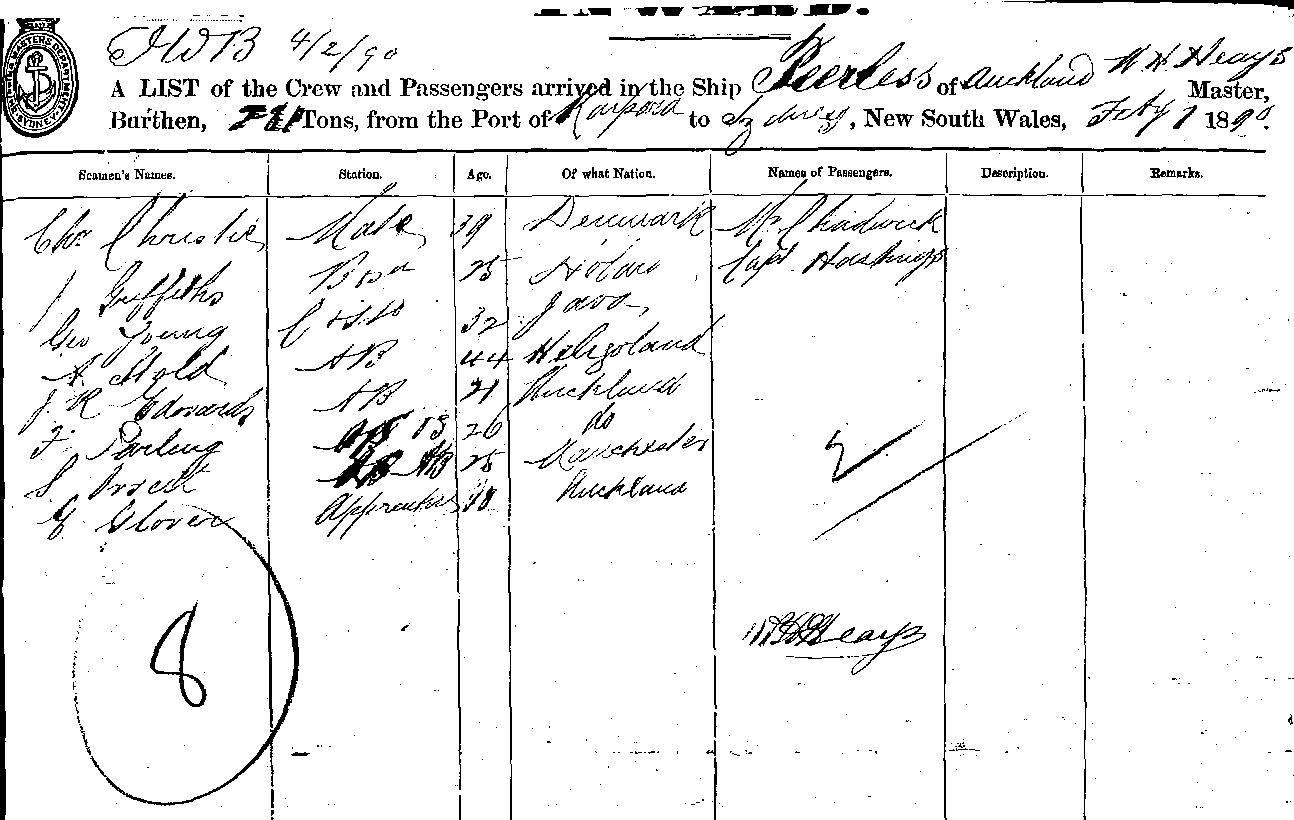 INWARD.
JWB 4/2/90
A LIST of the Crew and Passengers arrived in the Ship Peerless of Auckland W H Heays Master,
Burthen, Tons, from the Port of Kaipara to Sydney, New South Wales, Feby 1890.
Seamen's Names. Station. Age. Of what Nation. Names of Passengers. Description. Remarks.
Chr Christie Mate 39 Denmark Mr Chadwick
J Griffiths Bosn 25 Hobart Capt Hastings
Geo Young 32 Java
A Hold AB 44 Heligoland
J. R Edwards AB 21 Auckland
F. 26 do
S AB 25 Manchester
G Glover Apprentice 18 Auckland
2
8
W H Heays